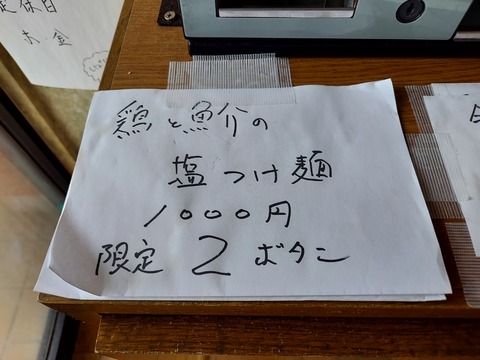 定休日
木金
鶏と魚介の
塩つけ麺
1000円
限定 2 ボタン
日